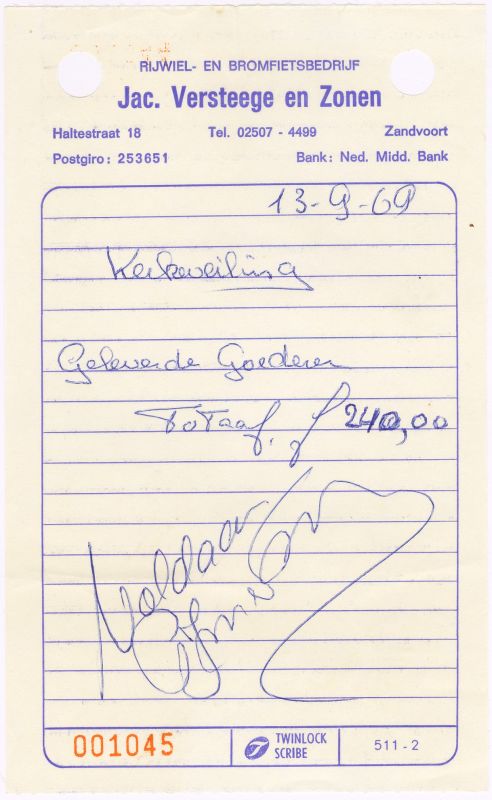 RIJWIEL- EN BROMFIETSBEDRIJF
Jac. Versteege en Zonen
Haltestraat 18 Tel. 02507 - 4499 Zandvoort
Postgiro: 253651 Bank: Ned. Midd. Bank
13-9-69
Kerkveiling
Geleverde Goederen
Totaal. f 240,00
Voldaan
001045 TWINLOCK SCRIBE 511-2